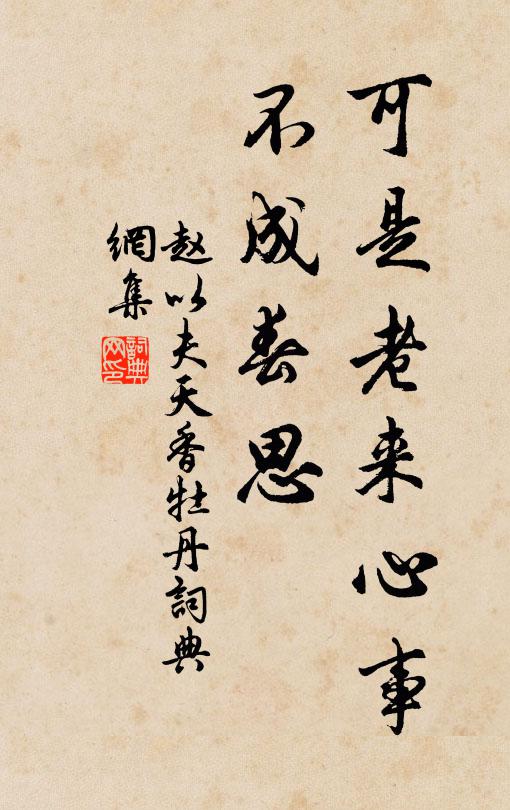 可是老来心事
不成春思
赵以夫天香牡丹詞典
網集
詞典
网印